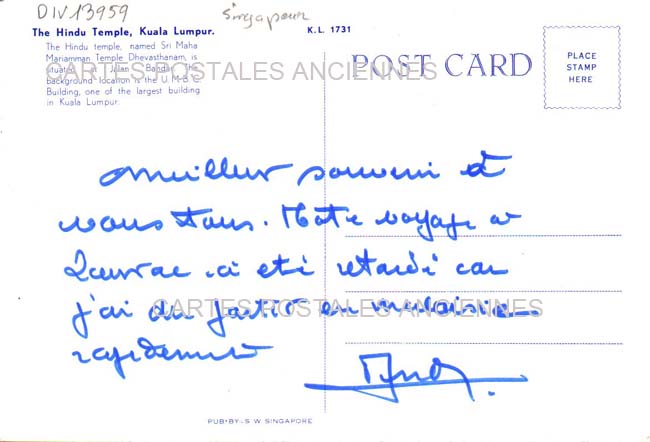 DIV13959
Singapour
The Hindu Temple, Kuala Lumpur.
K.L. 1731
The Hindu temple, named Sri Maha
Mariamman Temple Dhevasthanam, is
situated at Jalan Bandar. The
background location is the U.M.B.C
Building, one of the largest building
in Kuala Lumpur.
CARTES POSTALES ANCIENNES
POST CARD
PLACE
STAMP
HERE
meilleur souvenir à
vous tous. Notre voyage a
a été retardé car
j'ai du partir en malaisie
rapidement
CARTES POSTALES ANCIENNES
PUB·BY:-S.W.SINGAPORE